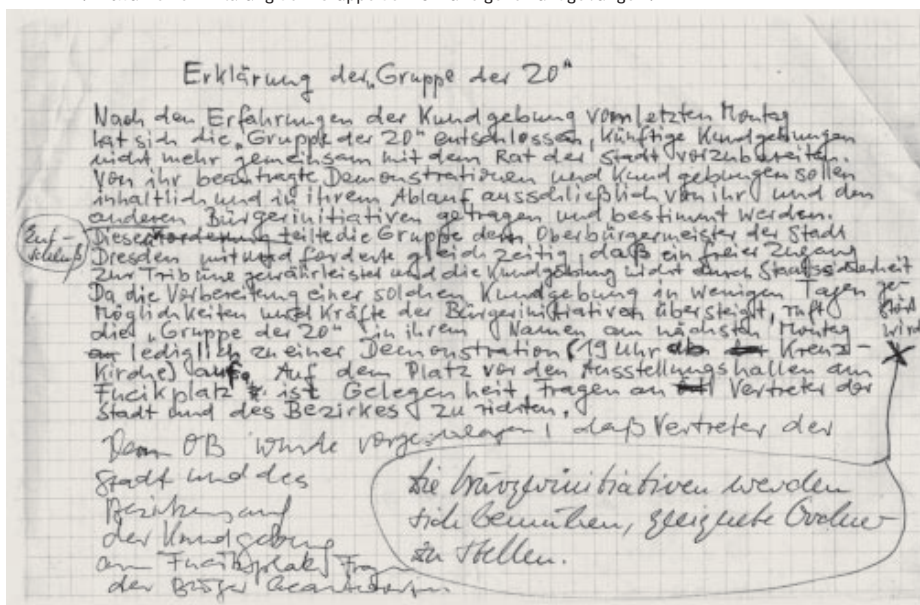 Erklärung der „Gruppe der 20"
Nach den Erfahrungen der Kundgebung vom letzten Montag
hat sich die „Gruppe der 20" entschlossen, künftige Kundgebungen
nicht mehr gemeinsam mit dem Rat der Stadt vorzubereiten.
Von ihr beantragte Demonstrationen und Kundgebungen sollen
inhaltlich und in ihrem Ablauf ausschließlich von ihr und den
anderen Bürgerinitiativen getragen und bestimmt werden.
Ent-
schluß
Diesen Forderung teilte die Gruppe dem Oberbürgermeister der Stadt
Dresden mit und forderte gleichzeitig, daß ein freier Zugang
zur Tribüne gewährleistet und die Kundgebung nicht durch Staatssicherheit
ge-
stört
wird
Da die Vorbereitung einer solchen Kundgebung in wenigen Tagen
Möglichkeiten und Kräfte der Bürgerinitiativen übersteigt, ruft
die „Gruppe der 20" in ihrem Namen am nächsten Montag
lediglich zu einer Demonstration (19 Uhr Kreuz-
kirche) auf. Auf dem Platz vor den Ausstellungshallen am
Fucikplatz ist Gelegenheit Fragen an Vertreter der
Stadt und des Bezirkes zu richten.
Dem OB wurde vorgeschlagen, daß Vertreter der
Stadt und des
Bezirkes auf
der Kundgebung
am Fucikplatz Fragen
der Bürger beantworten.
Die Bürgerinitiativen werden
sich bemühen, geeignete Ordner
zu stellen.